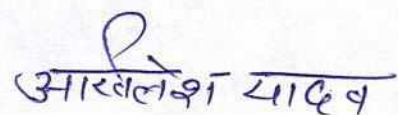 अखिलेश यादव